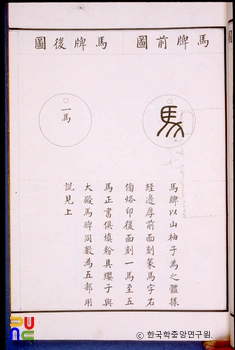 馬牌前圖
馬牌後圖
馬
一馬
馬牌以山柚子為之體㨾
經邊厚前面刻篆馬字右
傍烙印後面刻一馬至五
馬正書俱塡粉具纓子與
大殿馬牌同嚴為五部用
説見上
ⓒ 한국학중앙연구원